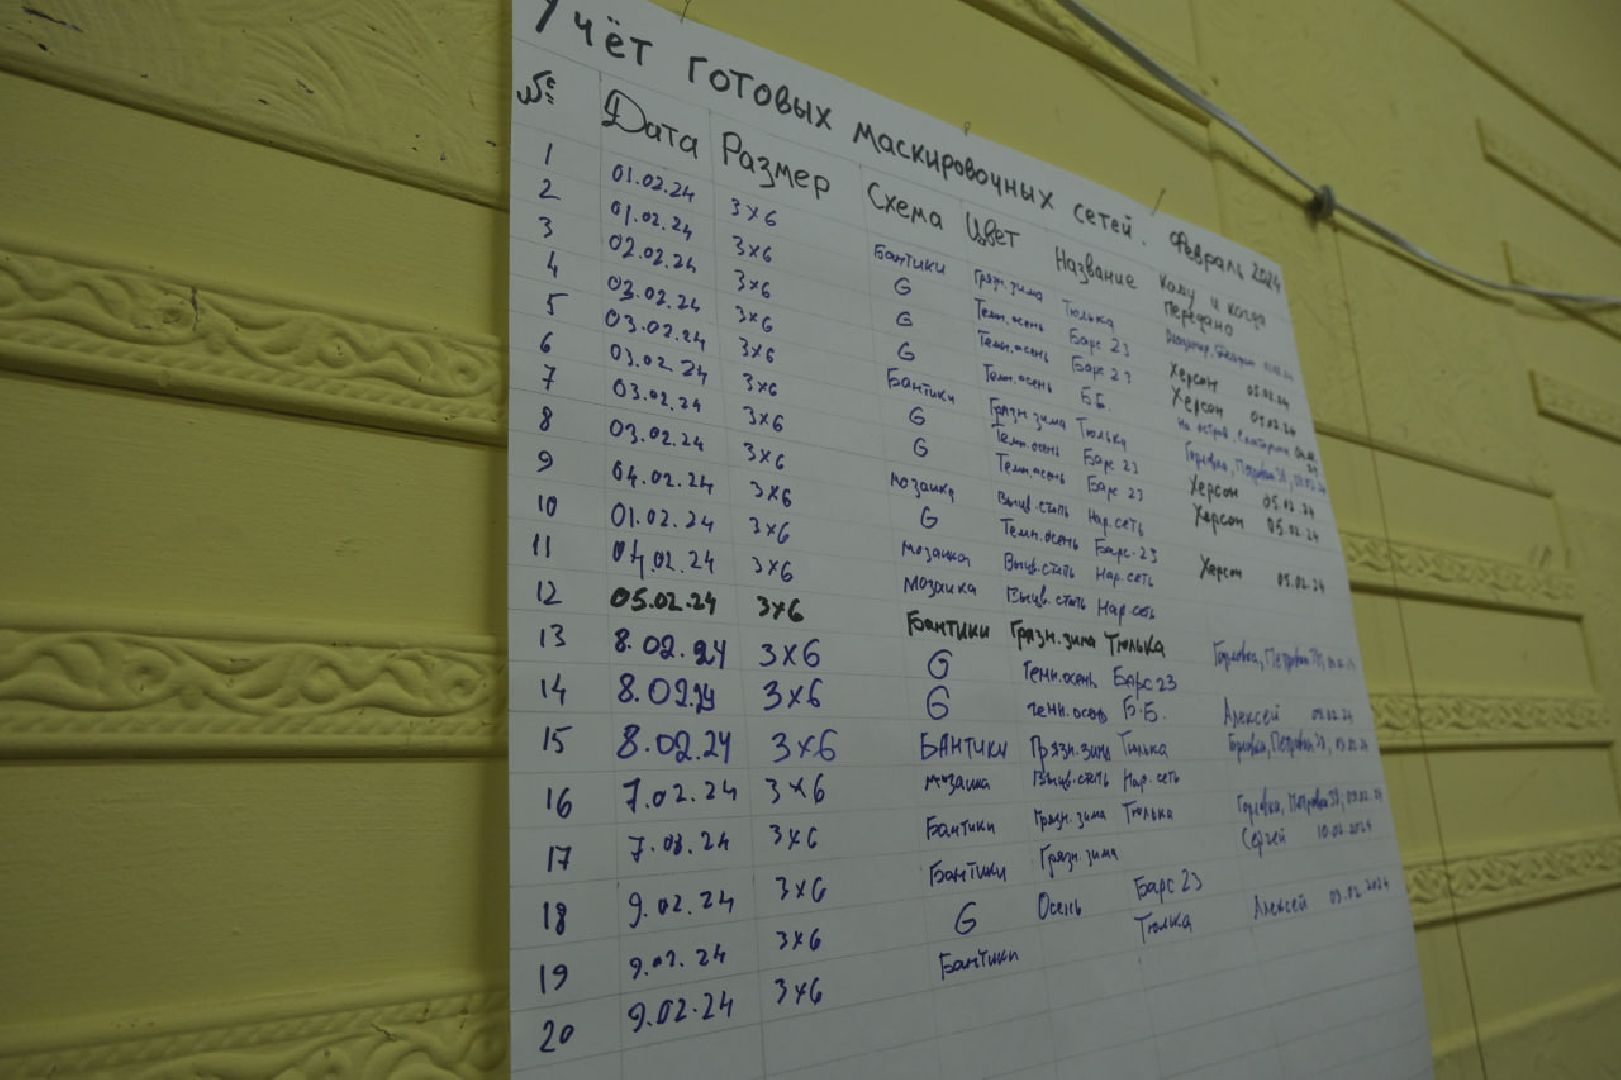 Учёт готовых маскировочных сетей. Февраль 2024
№ Дата Размер Схема Цвет Название Кому и когда передано
1 01.02.24 3х6 Бантики Грязн.зима Тюлька
2 01.02.24 3х6 G Темн.осень Барс 23 Херсон 05.02.24
3 02.02.24 3х6 G Темн.осень Барс 23 Херсон
4 02.02.24 3х6 G Темн.осень Б.Б.
5 03.02.24 3х6 Бантики Грязн.зима Тюлька Горловка,
6 03.02.24 3х6 G Темн.осень Барс 23 Херсон 05.02.24
7 03.02.24 3х6 G Темн.осень Барс 23 Херсон 05.02.24
8 03.02.24 3х6 мозаика Выцв.степь Нар.сеть
9 04.02.24 3х6 G Темн.осень Барс.23 Херсон 05.02.24
10 01.02.24 3х6 мозаика Выцв.степь Нар.сеть
11 04.02.24 3х6 мозаика Выцв.степь Нар.сеть
12 05.02.24 3х6 Бантики Грязн.зима Тюлька Горловка,
13 8.02.24 3х6 G Темн.осень Барс 23
14 8.02.24 3х6 G темн.осень Б.Б. Алексей
15 8.02.24 3х6 БАНТИКИ Грязн.зима Тюлька Горловка,
16 7.02.24 3х6 мозаика Выцв.степь Нар.сеть
17 7.02.24 3х6 Бантики Грязн.зима Тюлька Горловка,
18 9.02.24 3х6 Бантики Грязн.зима Сергей 10.02.2024
19 9.02.24 3х6 G Осень Барс 23
20 9.02.24 3х6 Бантики Тюлька Алексей 2024